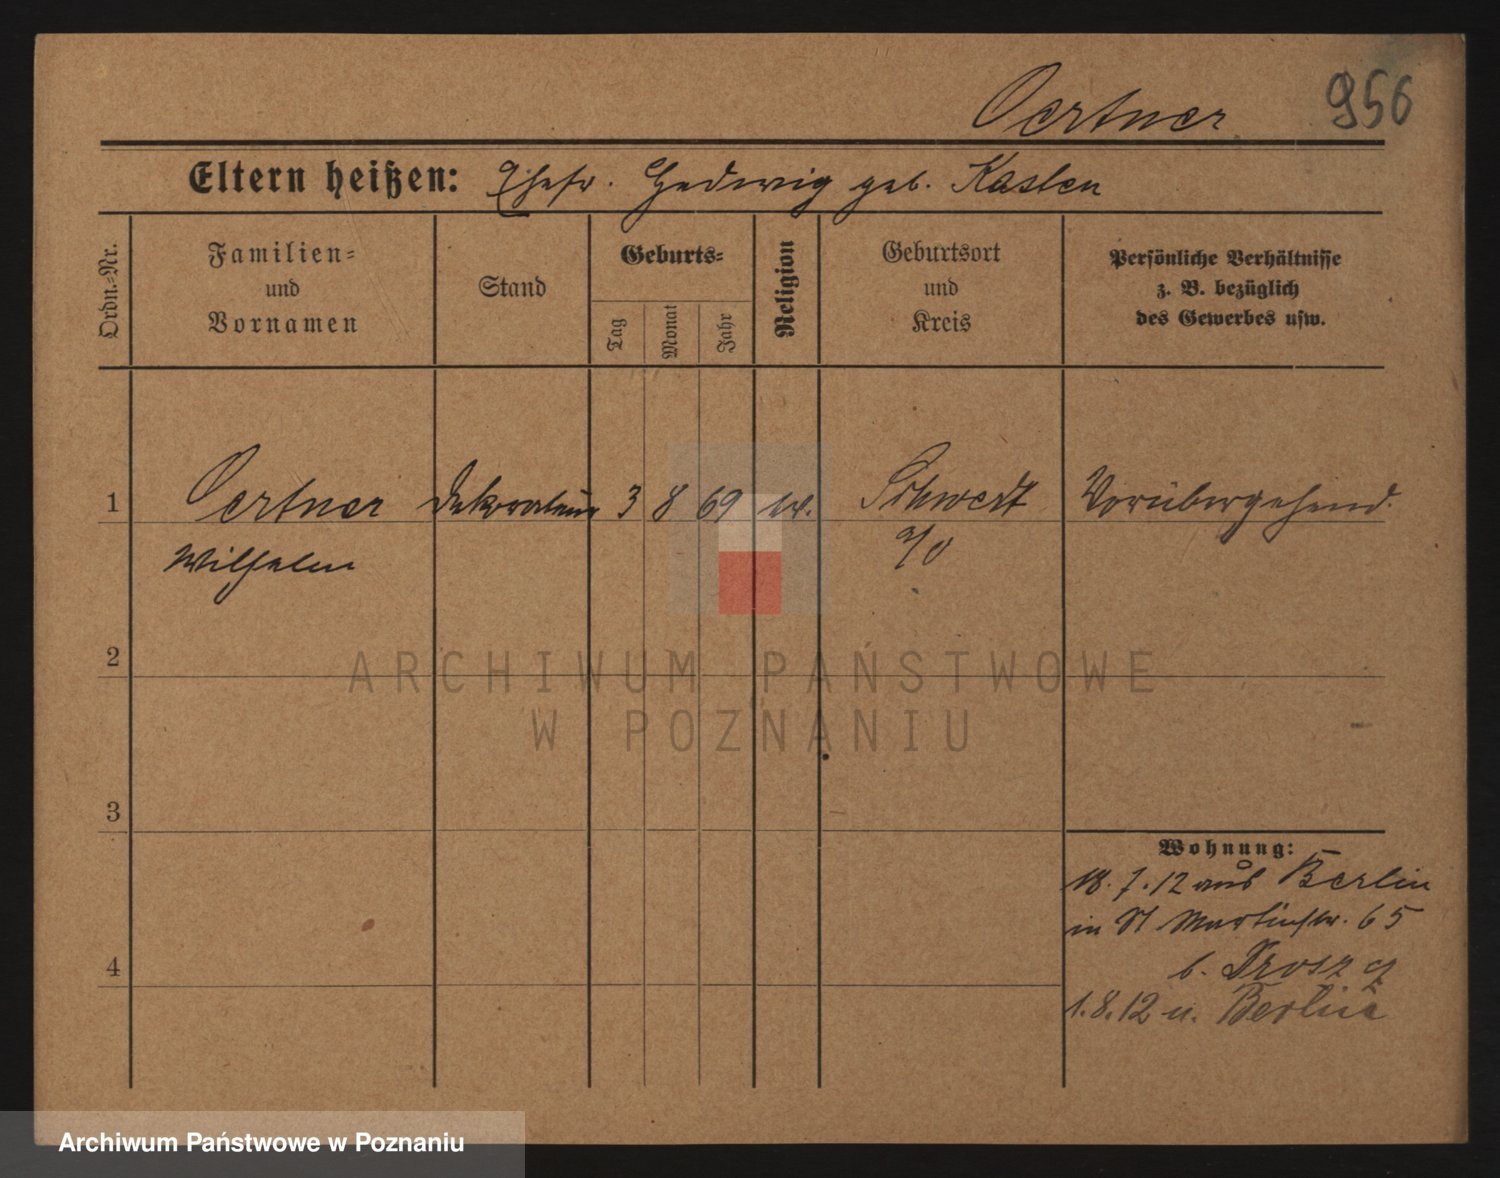 Oertner 956
Eltern heißen: Ehefr. Hedwig geb. Kasten
Ordn.-Nr.
Familien=
und
Vornamen
Stand
Geburts=
Tag
Monat
Jahr
Religion
Geburtsort
und
Kreis
Persönliche Verhältnisse
z. B. bezüglich
des Gewerbes usw.
1 Oertner Dekorateur 3 8 69 ev. Schwedt Vorübergehend.
Wilhelm a/O
ARCHIWUM PAŃSTWOWE
W POZNANIU
2
3
4
Wohnung:
18.7.12 aus Berlin
in St Martinstr. 65
b. Trosz
1.8.12 n. Berlin
Archiwum Państwowe w Poznaniu